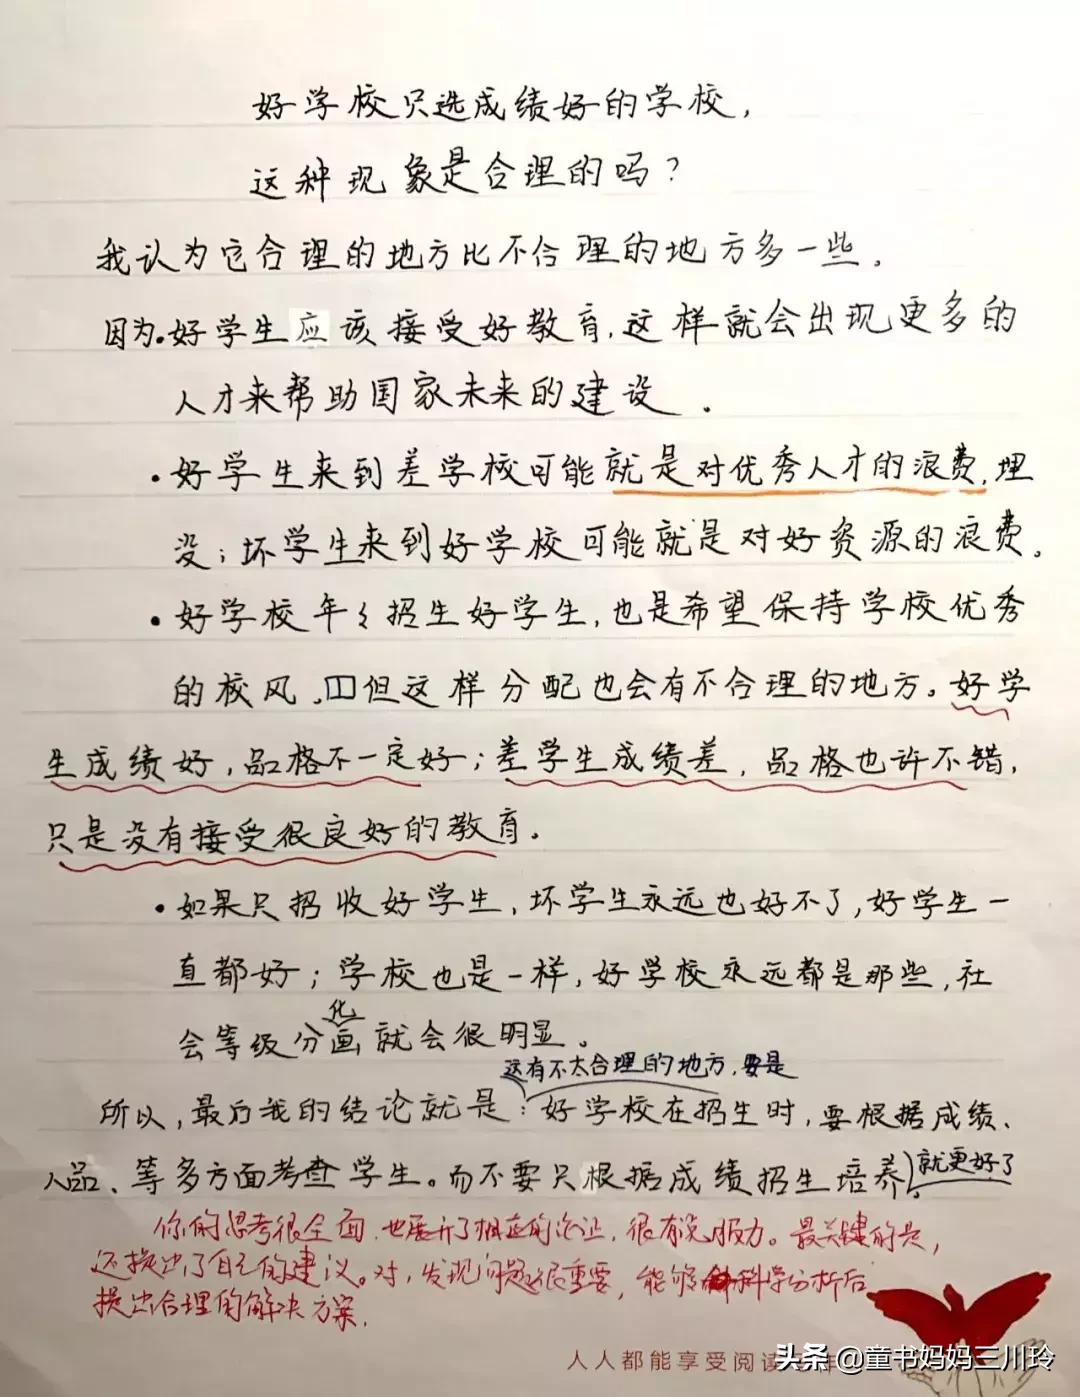 好学校只选成绩好的学校，
这种现象是合理的吗？
我认为它合理的地方比不合理的地方多一些。
因为·好学生应该接受好教育，这样就会出现更多的
人才来帮助国家未来的建设。
·好学生来到差学校可能就是对优秀人才的浪费，埋
没；坏学生来到好学校可能就是对好资源的浪费。
·好学校年々招生好学生，也是希望保持学校优秀
的校风。但这样分配也会有不合理的地方。好学
生成绩好，品格不一定好；差学生成绩差，品格也许不错，
只是没有接受很良好的教育。
·如果只招收好学生，坏学生永远也好不了，好学生一
直都好；学校也是一样，好学校永远都是那些，社
化
会等级分画就会很明显。
这有不太合理的地方，要是
所以，最后我的结论就是：好学校在招生时，要根据成绩、
人品、等多方面考查学生。而不要只根据成绩招生培养，就更好了
你的思考很全面，也展开了相应的论证，很有说服力。最关键的是，
还提出了自己的建议。对，发现问题很重要，能够科学分析后
提出合理的解决方案。
人人都能享受阅读
头条@童书妈妈三川玲